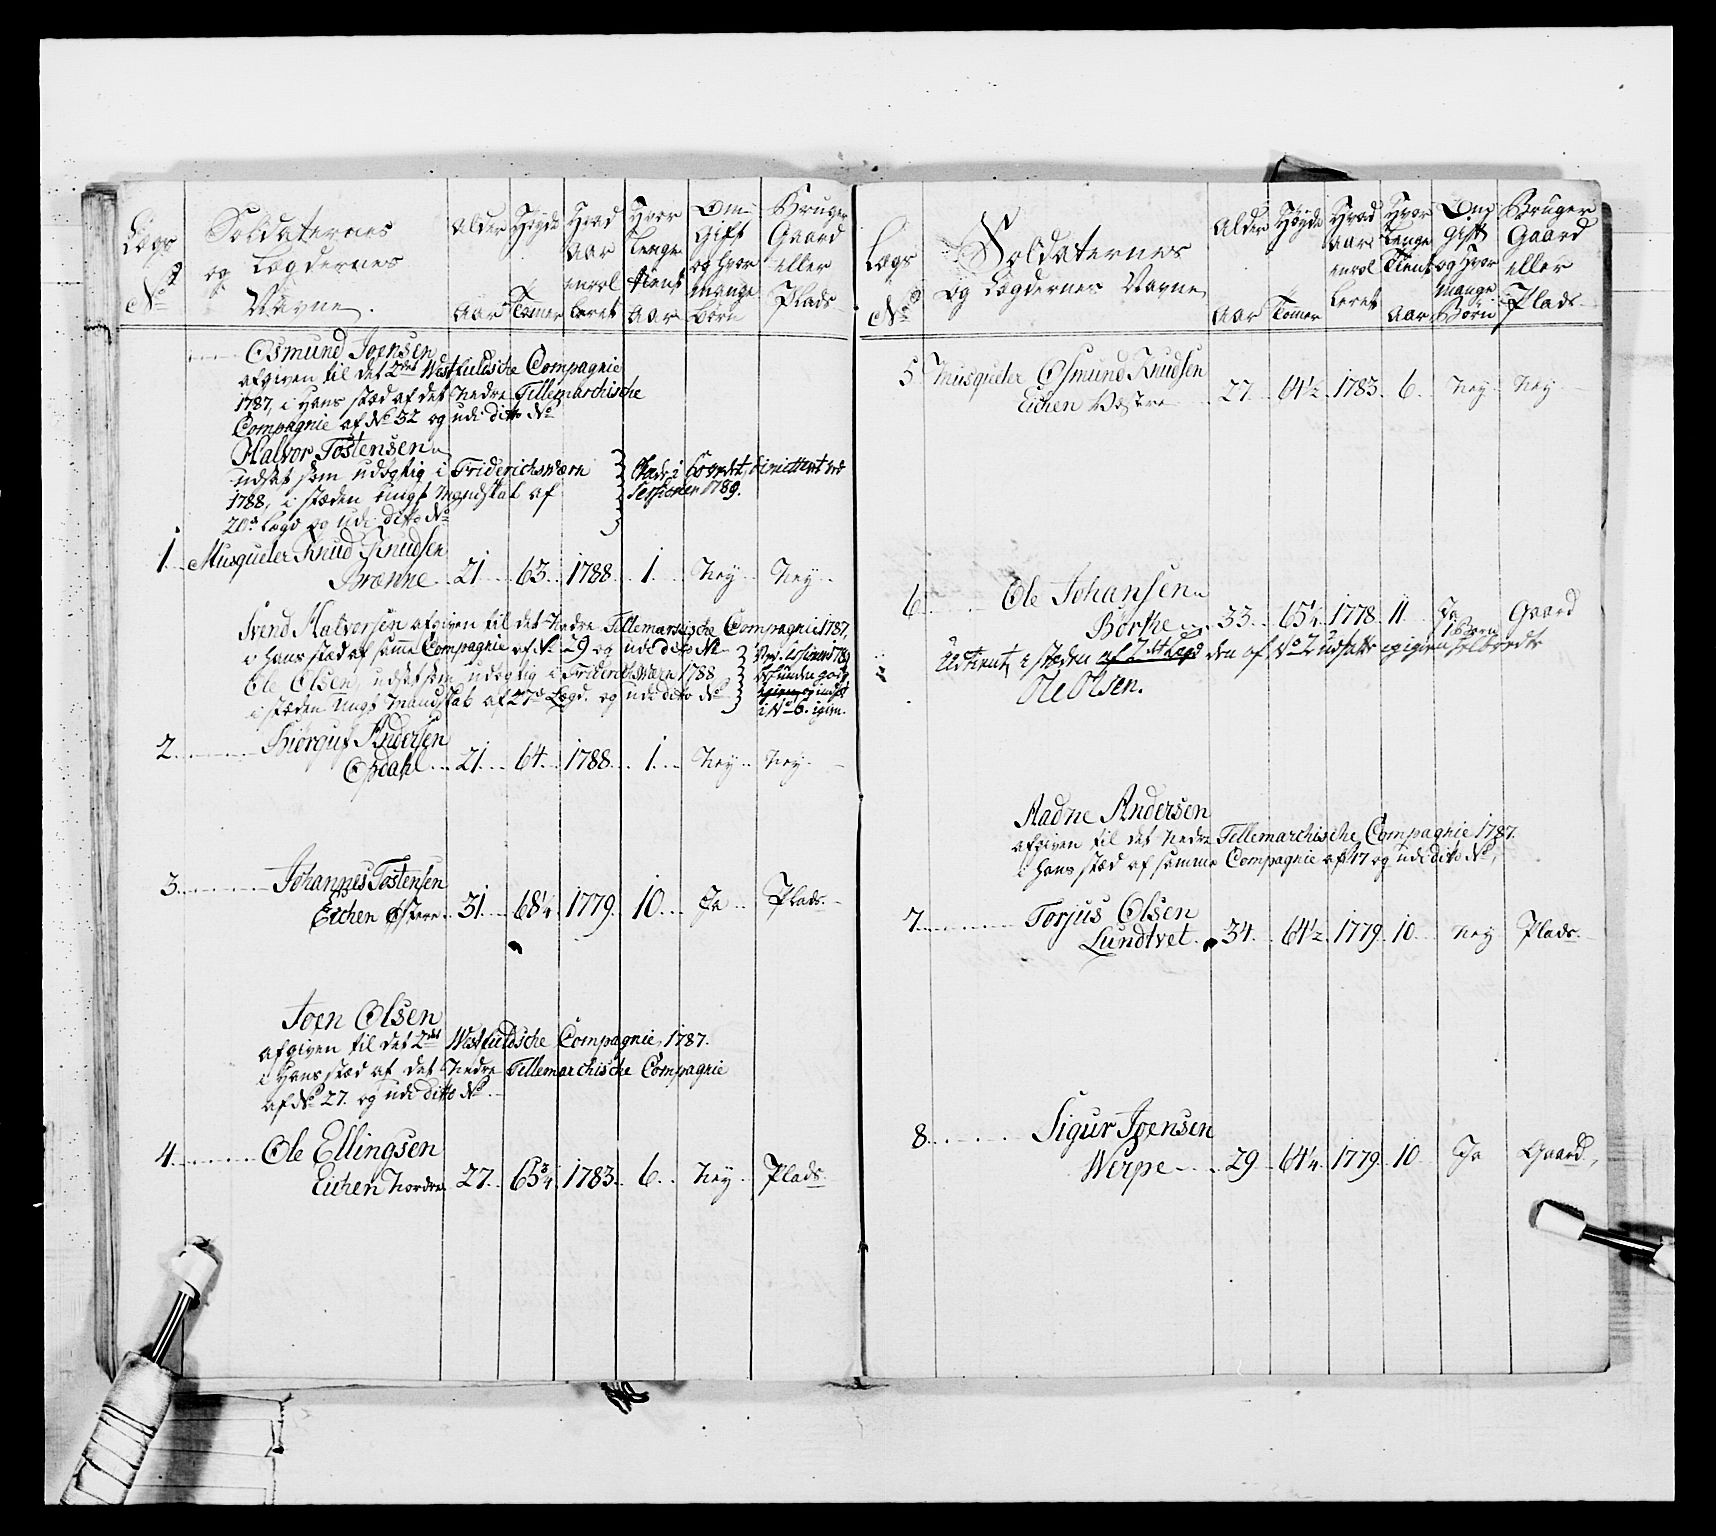 Lægs
No
Soldaternes
og Lægdernes
Navne.
Alder
Aar
Høyde
Tomer
Hvad
Aar
enrol
leret
Hvor
Lenge
tient
Aar
Om
Gift
og hvor
mange
Børn
Bruger
Gaard
eller
Plads
Osmund Joensen
afgiven til det 2det Westfieldsche Compagnie
1787, i Hans stæd af det Nedre Tellemarchische
Compagnie af No 32 og udi ditto No
Halvor Tostensen
udsat som udøgtig i Friderichsværn
1788, i stæden ungt Mandskab af
20de Lægd og udi ditto No
Sessionen 1789.
1 Musqueter Knud Knudsen
Brænne 21 63 1788 1 Ney Ney
Svend Halvorsen afgiven til det Nedre Tellemarsische Compagnie 1787,
i hans stæd af samme Compagnie af No 29 og udi dito No
Ole Olsen, udsat som udøgtig i Friderichsværn 1788
i stæden ungt Mandskab af 27de Lægd. og udi dito No
i No 6. igien.
2 Biørguf Andersen
Opdahl 21 64 1788 1 Ney Ney
3 Johannes Tostensen
Eichen Østere 31 68¼ 1779 10 Ja Plads
Joen Olsen
afgiven til det 2det Westfieldsche Compagnie 1787.
i Hans stæd af det Nedre Tellemarchische Compagnie
af No 27. og udi ditto No
4 Ole Ellingsen
Eichen Nordre 27 63¾ 1783 6 Ney Plads
Lægs
No
Soldaternes
og Lægdernes Navne
Alder
Aar
Høyde
Tomer
Hvad
Aar
enrol
leret
Hvor
Lenge
Tient
Aar
Om
gift
og Hvor
mange
Børn
Bruger
Gaard
eller
Plads
5 Musqueter Osmund Knudsen
Eichen Vestre 27 64½ 1783 6 Ney Ney
6 Ole Johansen
Borke 33 65¼ 1778 11 Ja 1 Børn Gaard
Udtient, i stæden af 7de Lægd den af No 2 udsatte igien helbrede
Ole Olsen.
Aadne Andersen
afgiven til det Nedre Tellemarchische Compagnie 1787.
i hans stæd af samme Compagnie af 47 og udi dito No,
7 Torjus Olsen
Lundtvet 34 64½ 1779 10 Ney Plads
8 Sigur Joensen
Werpe 29 64¼ 1779 10 Ja Gaard